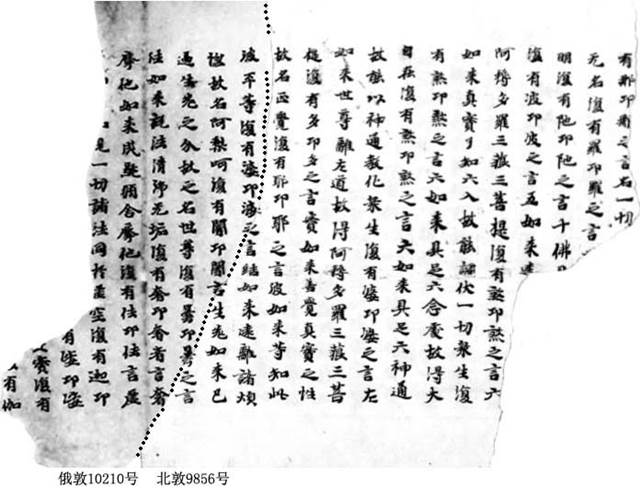 有那印那之言名一切
无名復有羅印羅之言
明復有陁印陁之言十佛
復有波印波之言五如来
阿耨多羅三藐三菩提復有煞印煞之言六
如来真實了知六入故能調伏一切衆生復
有煞印煞之言六如来具足六念處故得大
自在復有煞印煞之言六如来具足六神通
故能以神通教化衆生復有婆印婆之言左
如来世尊離左道故得阿耨多羅三藐三菩
提復有多印多之言實如来善覺真實之性
故名正覺復有耶印耶之言彼如来等知此
彼平等復有婆印婆之言結如来遠離諸煩
惱故名阿梨呵復有闍印闍言生老如来已
過生老之分故之名世尊復有曇印曇之言
法如来說法清淨无垢復有奢印奢者言奢
摩他如来成就 摩他復有佉印佉言虛
見一切諸法同於虛空復有迦印
有婆印婆
實復有
有伽
俄敦10210号 北敦9856号